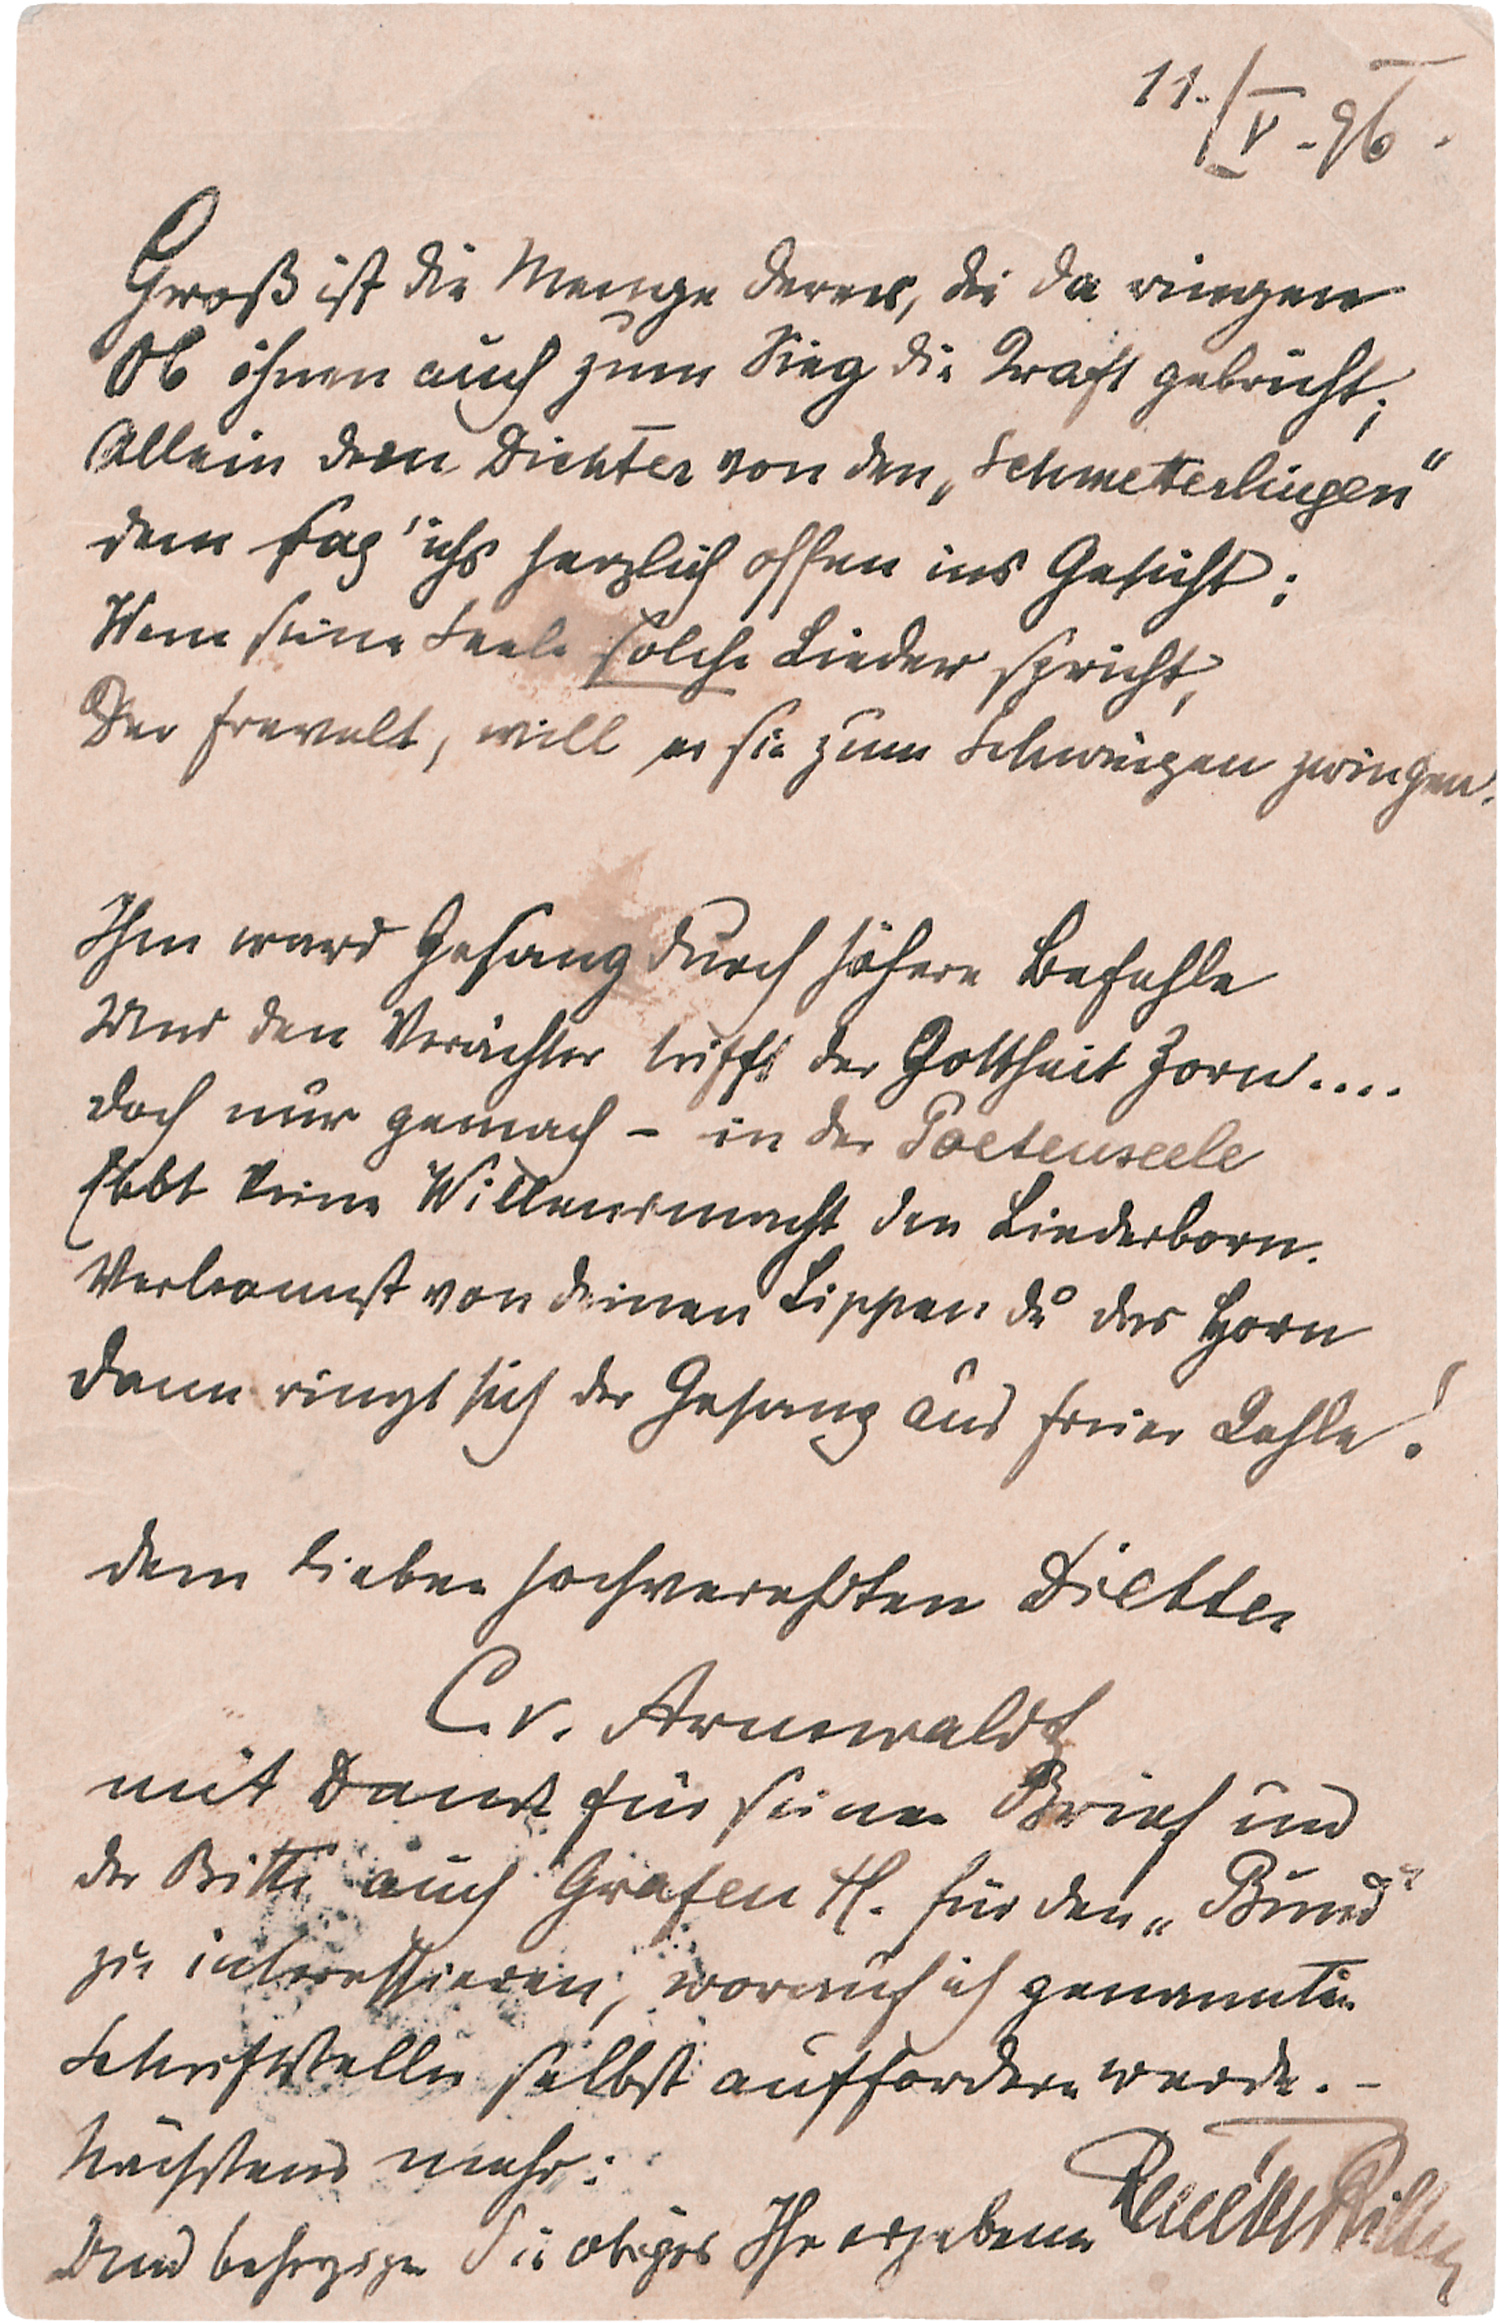 11./V.-96.
Groß ist die Menge derer, die da ringen
Ob ihnen auch zum Sieg die Kraft gebricht;
Allein dem Dichter von den „Schmetterlingen“
dem sag' ichs herzlich offen ins Gesicht:
Wem seine Seele solche Lieder spricht,
Der frevelt, will er sie zum Schweigen zwingen.
Ihm ward Gesang durch höhere Befehle
Und den Verächter trifft der Gottheit Zorn....
doch nur gemach – in der Poetenseele
Ebbt keine Willensmacht den Liederborn.
Verbannst von deinen Lippen du das Horn
dann ringt sich der Gesang aus freier Kehle!
dem lieben hochverehrten Dichter
C. v. Arnswaldt
mit Dank für seinen Brief und
der Bitte auch Grafen H. für den „Bund“
zu interessieren, worauf ich genannten
Schriftsteller selbst auffordern werde. –
Nächstens mehr:
Und beherzigen Sie obiges Ihr ergebener René Maria Rilke